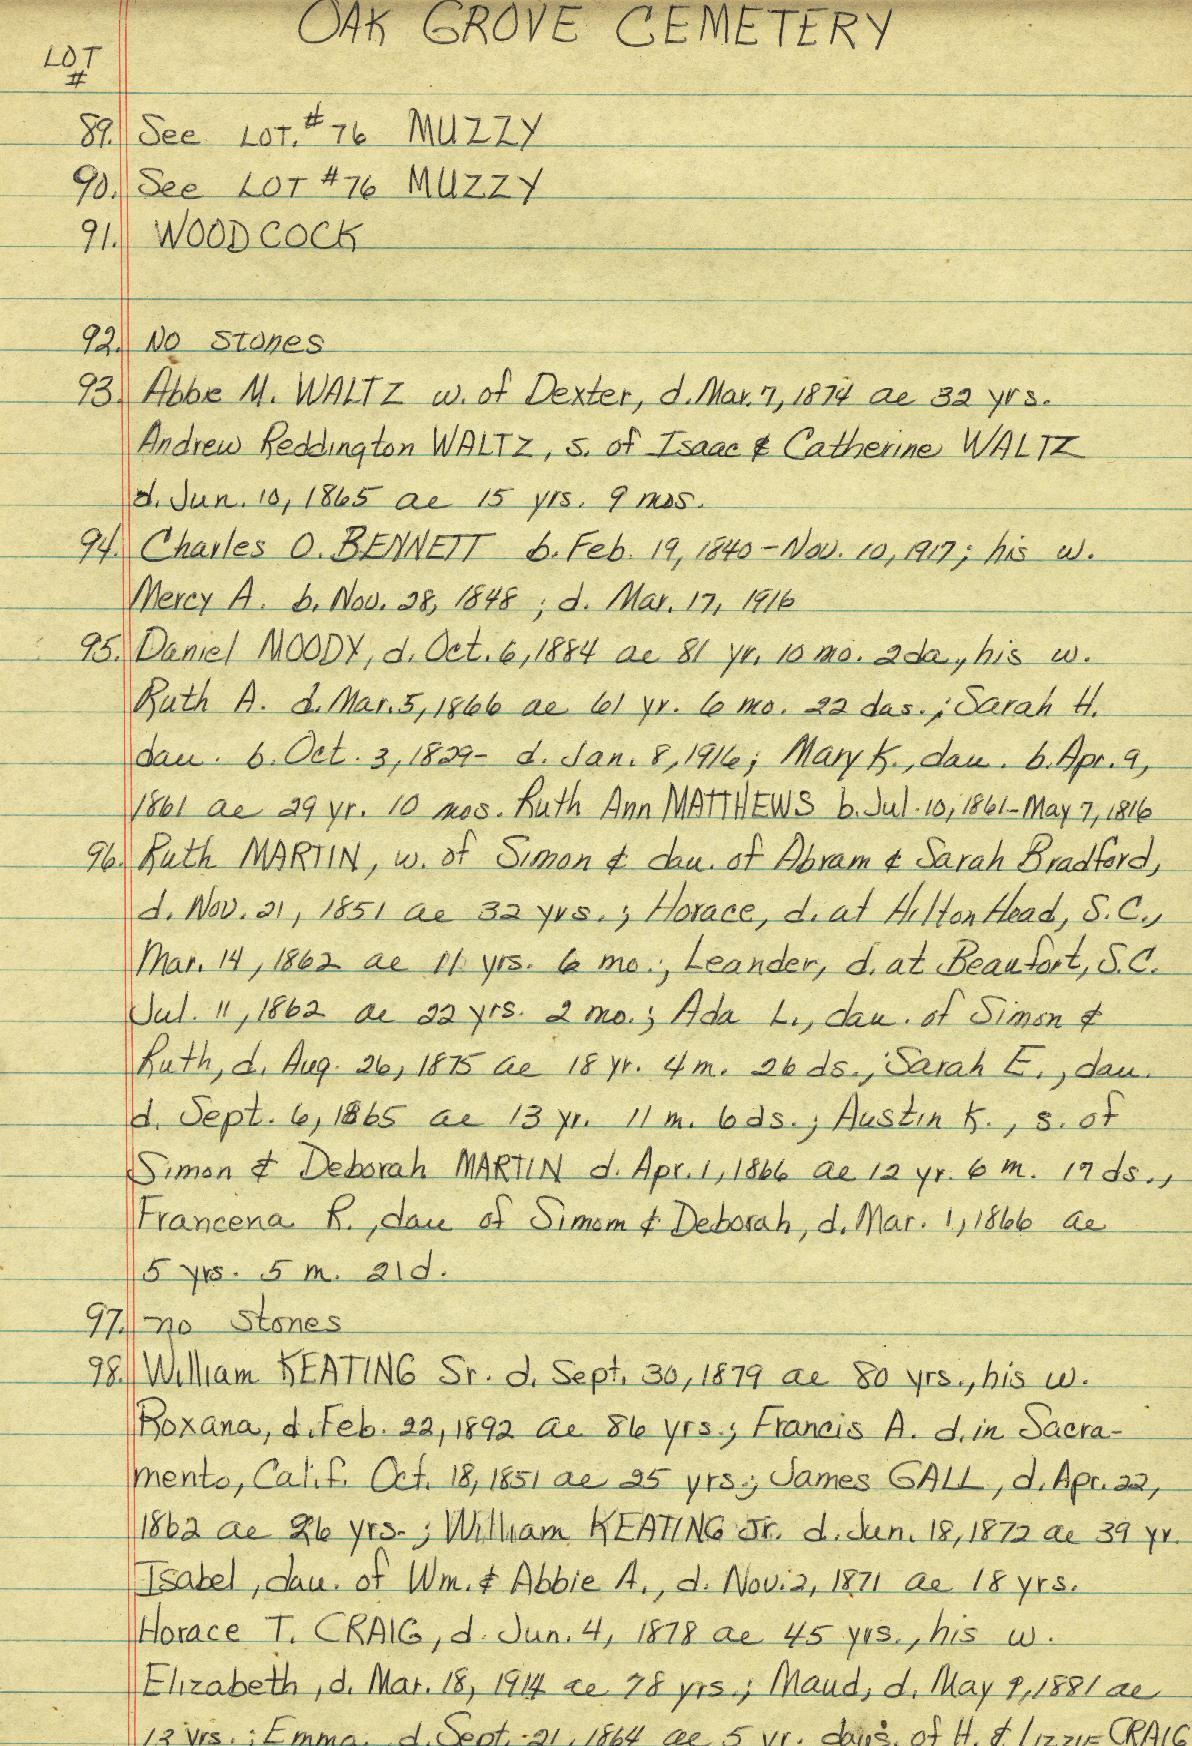 OAK GROVE CEMETERY
LOT
#
89. See LOT. #76 MUZZY
90. See LOT #76 MUZZY
91. WOODCOCK
92. No stones
93. Abbie M. WALTZ w. of Dexter, d. Mar. 7, 1874 ae 32 yrs.
Andrew Reddington WALTZ, s. of Isaac & Catherine WALTZ
d. Jun. 10, 1865 ae 15 yrs. 9 mos.
94. Charles O. BENNETT b. Feb. 19, 1840 - Nov. 10, 1917; his w.
Mercy A. b. Nov. 28, 1848 ; d. Mar. 17, 1916
95. Daniel MOODY, d. Oct. 6, 1884 ae 81 yr. 10 mo. 2da., his w.
Ruth A. d. Mar. 5, 1866 ae 61 yr. 6 mo. 22 das.; Sarah H.
dau. b. Oct. 3, 1829- d. Jan. 8, 1916; Mary K., dau. b. Apr. 9,
1861 ae 29 yr. 10 mos. Ruth Ann MATTHEWS b. Jul. 10, 1861-May 7, 1816
96. Ruth MARTIN, w. of Simon & dau. of Abram & Sarah Bradford,
d. Nov. 21, 1851 ae 32 yrs.; Horace, d. at Hilton Head, S.C.,
Mar. 14, 1862 ae 11 yrs. 6 mo.; Leander, d. at Beaufort, S.C.
Jul. 11, 1862 ae 22 yrs. 2 mo.; Ada L., dau. of Simon &
Ruth, d. Aug. 26, 1875 ae 18 yr. 4 m. 26 ds.; Sarah E., dau.
d. Sept. 6, 1865 ae 13 yr. 11 m. 6 ds.; Austin K., s. of
Simon & Deborah MARTIN d. Apr. 1, 1866 ae 12 yr. 6 m. 17 ds.,
Francena R., dau of Simom & Deborah, d. Mar. 1, 1866 ae
5 yrs. 5 m. 21 d.
97. no stones
98. William KEATING Sr. d. Sept. 30, 1879 ae 80 yrs., his w.
Roxana, d. Feb. 22, 1892 ae 86 yrs.; Francis A. d. in Sacra-
mento, Calif. Oct. 18, 1851 ae 25 yrs.; James GALL, d. Apr. 22,
1862 ae 26 yrs. ; William KEATING Jr. d. Jun. 18, 1872 ae 39 yr.
Isabel, dau. of Wm. & Abbie A., d. Nov. 2, 1871 ae 18 yrs.
Horace T. CRAIG, d. Jun. 4, 1878 ae 45 yrs., his w.
Elizabeth, d. Mar. 18, 1914 ae 78 yrs.; Maud, d. May 9, 1881 ae
13 yrs.; Emma, d. Sept. 21, 1864 ae 5 yr. daus. of H. & Lizzie CRAIG